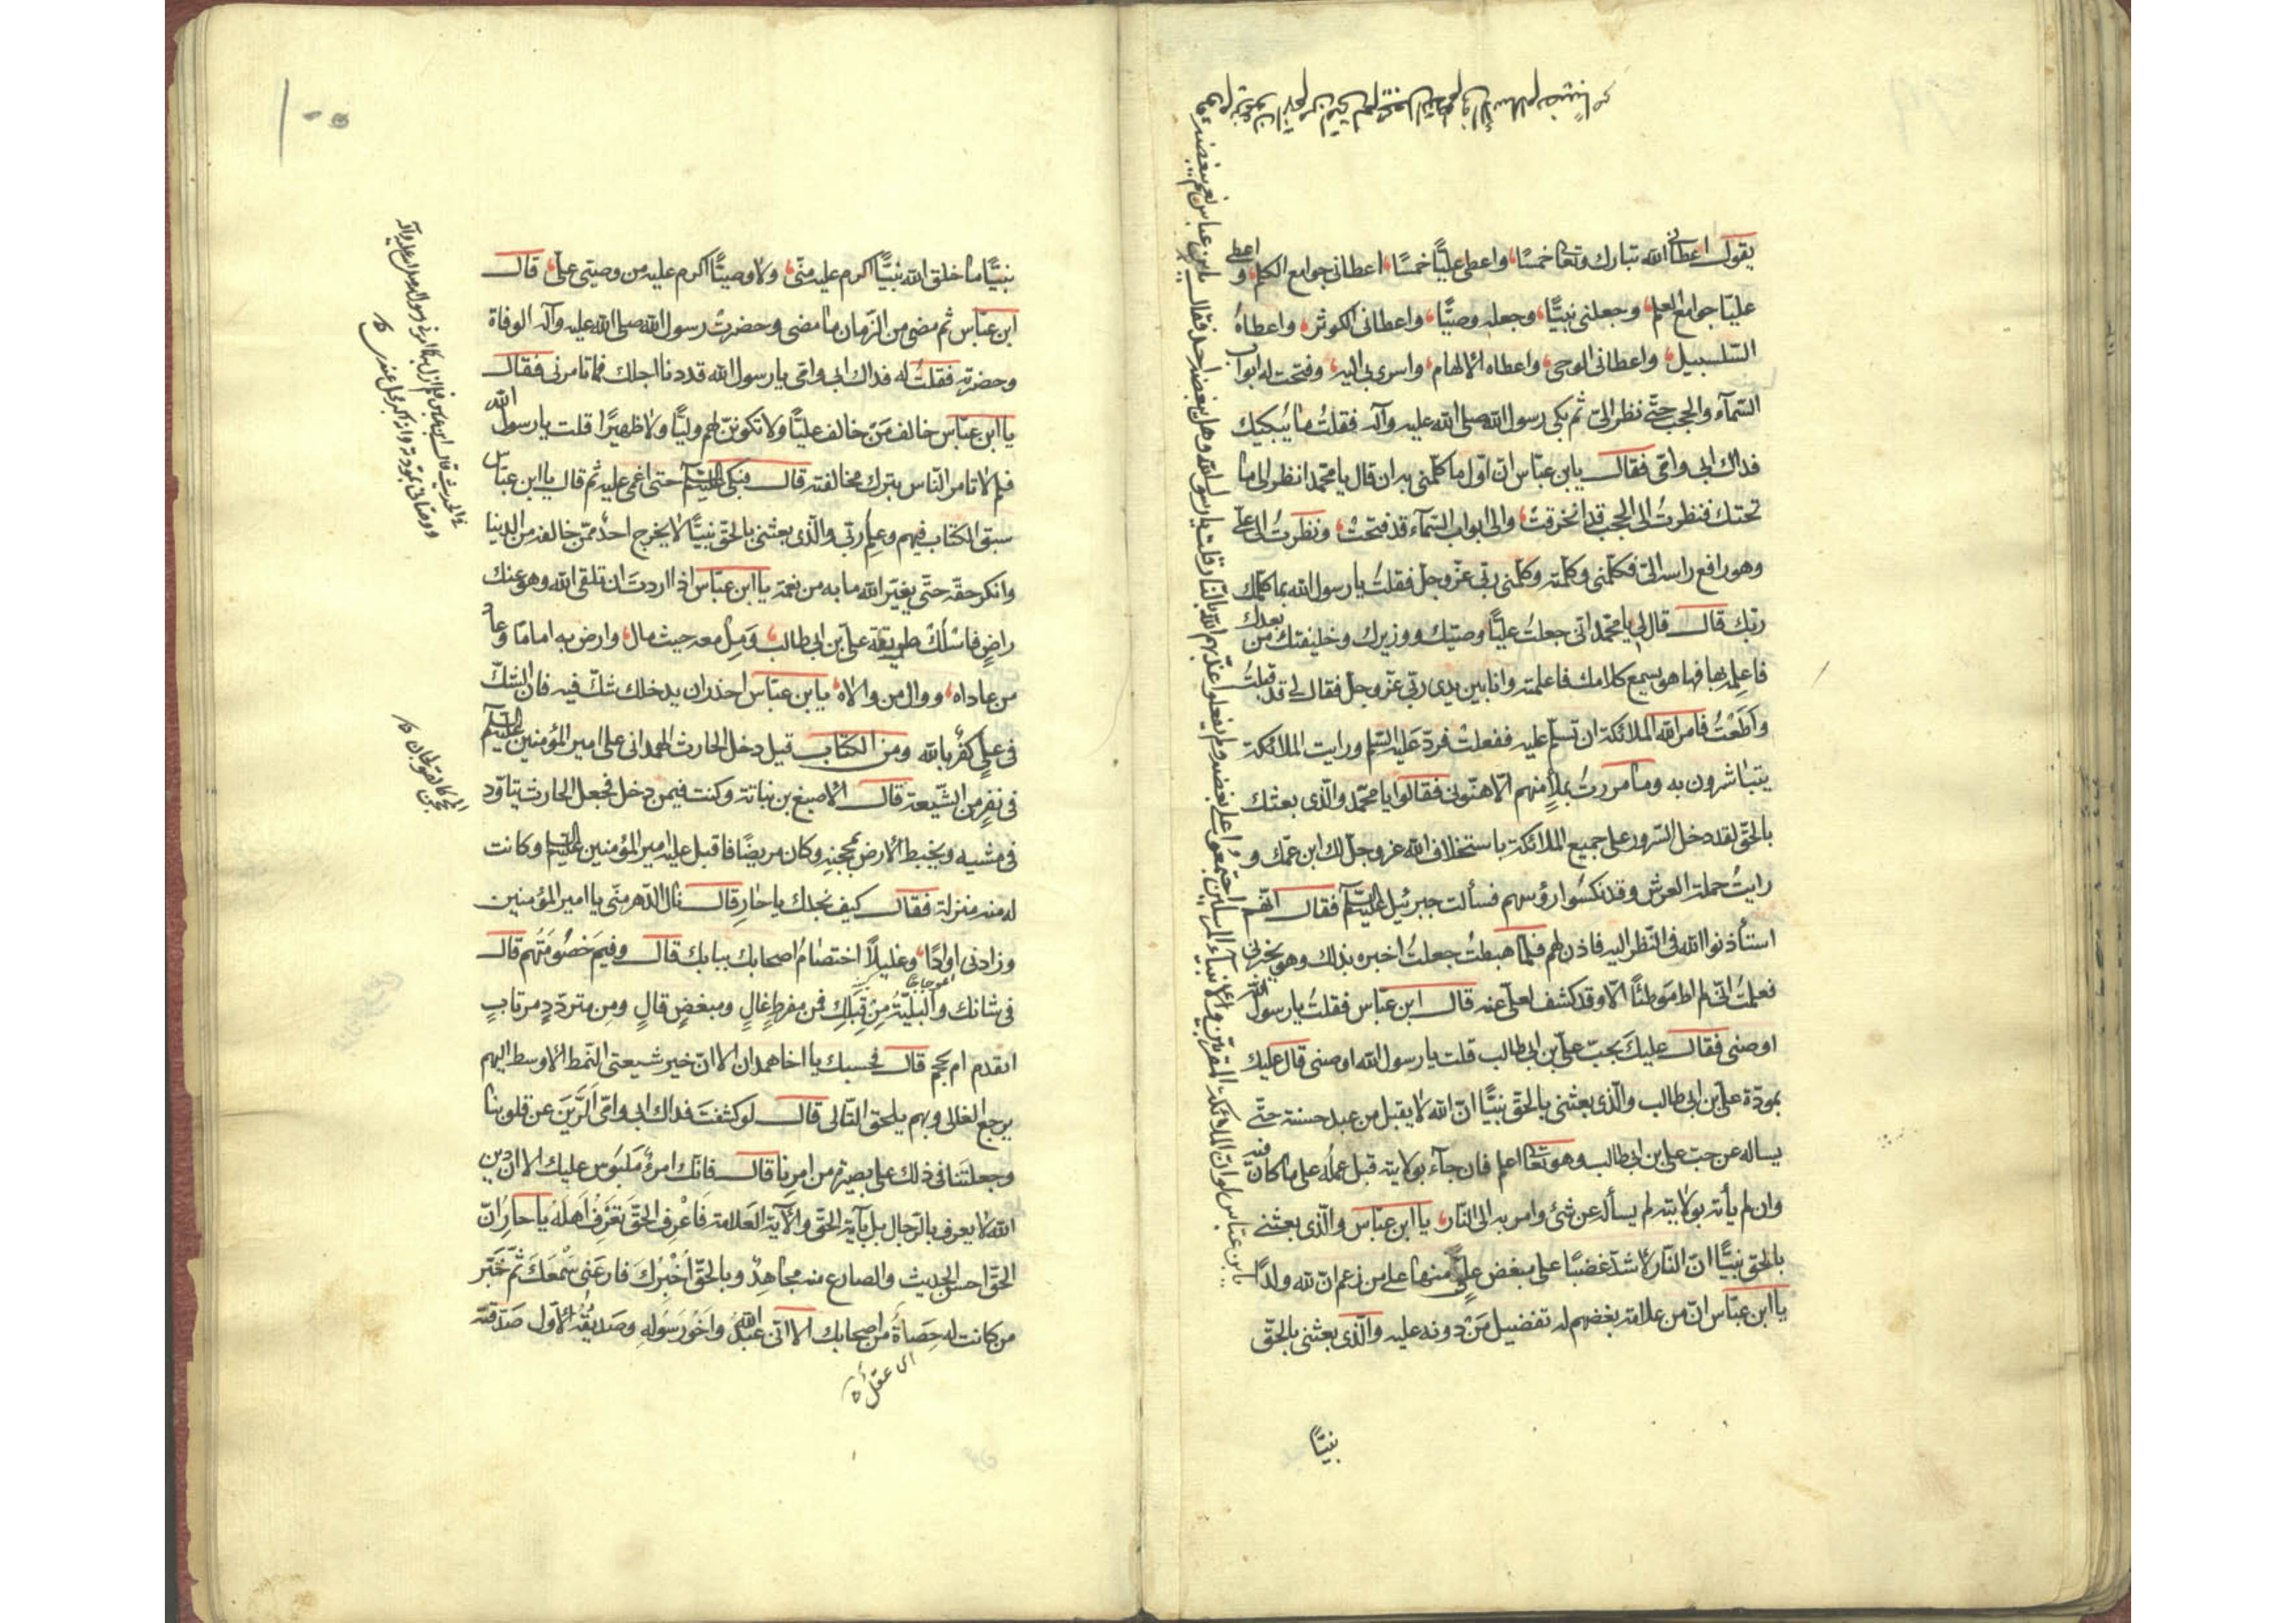 يقول اعطانى الله تبارك وتعا خمسًا واعطى عليًّا خمسًا اعطانى جوامع الكلم واعطى
عليّا جوامع العلم وجعلنى نبيًّا وجعله وصيًّا واعطانى الكوثر واعطاه
السّلسبيل واعطانى الوحى واعطاه الالهام واسرى بى اليه وفتحت له ابواب
السّمآء والحجب حتّى نظر الىّ ثم بكى رسول الله صلى الله عليه وآله فقلتُ ما يُبكيك
فداك ابى وامّى فقال يا بن عبّاس انّ اوّل ما كلّمنى به ان قال يا محمّد انظر الى ما
تحتك فنظرتُ الى الحجب قد انخرقتْ والى ابواب السّمآء قد فتحتْ ونظرتُ الى علىّ
وهو رافع راسه الىّ فكلّمنى وكلّمته وكلّمنى ربّى عزّ وجلّ فقلتُ يا رسول الله بما كلّمك
ربّك قال قال لى يا محمّد انّى جعلتُ عليًّا وصيّك ووزيرك وخليفتك من بعدك
فاعلمه بها فها هو يسمع كلامك فاعلمته وانا بين يدى ربّى عزّ وجلّ فقال لى قد قبلتُ
وأطعتُ فامر الله الملائكة ان تسلّم عليه ففعلتْ فردّ عليهم السّلم ورايت الملائكة
يتباشرون به وما مررتُ بملأٍ منهم الّا هنّونى فقالوا يا محمّد والّذى بعثك
بالحقّ لقد دخل السّرور على جميع الملائكة باستخلاف الله عز وجلّ لك ابن عمّك و
رايتُ حملة العرش وقد نكسوا رؤسهم فسألت جبرئيل عليه السّلم فقال انّهم
استأذنوا الله فى النّظر اليه فاذن لهم فلمّا هبطتُ جعلتُ اخبره بذلك وهو يخبرنى
فعلمتُ انّى لم اطأ موطئًا الّا وقد كشف لعلىّ عنه قال ابن عبّاس فقلتُ يا رسول الله
اوصنى فقال عليك بحبّ علىّ بن ابى طالب قلت يا رسول الله اوصنى قال عليك
بمودّة علىّ بن ابى طالب والّذى بعثنى بالحقّ نبيًّا انّ الله لا يقبل من عبد حسنة حتّى
يساله عن حبّ على بن ابى طالب وهو تعا اعلم فان جآء بولايته قبل عمله على ما كان فيه
وان لم يأته بولايته لم يسأله عن شئ وامر به الى النّار يا ابن عبّاس والّذى بعثنى
بالحق نبيًّا انّ النّار لاشدّ غضبًا على مبغض علىّ منها على من زعم انّ لله ولدًا
يا ابن عبّاس انّ من علامة بغضهم له تفضيل مَنْ دونه عليه والّذى بعثنى بالحقّ
نبيًّا
يا بن عبّاس لو انّ الملائكة المقرّبين والانبياء المرسلين اجتمعوا على بغضه ولم يفعلوا لعذّبهم الله بالنّار قلت يا رسول الله وهل يبغضه احد فقال يا بن عباس نعم يبغضه قوم
نبيًّا ما خلق الله نبيًّا اكرم عليه منّى ولا وصيًّا اكرم عليه من وصيّى علىّ قال
ابن عبّاس ثم مضى من الزّمان ما مضى وحضرتْ رسول الله صلى الله عليه وآله الوفاة
وحضرته فقلتُ له فداك ابى وامّى يا رسول الله قد دنا اجلك فما تامرنى فقال
يا ابن عبّاس خالف مَنْ خالف عليًّا ولا تكوننّ لهم وليًّا ولا ظهيرًا قلت يا رسول الله
فلم لا تامر النّاس بترك مخالفته قال فبكى عليه السّلم حتى اغمى عليه ثم قال يا ابن عبّاس
سبق الكتاب فيهم وعلم ربّى والّذى بعثنى بالحقّ نبيًّا لا يخرج احد ممّن خالفه من الدنيا
وانكر حقّه حتّى يغيّر الله ما به من نعمة يا ابن عبّاس اذا اردتَ ان تلقى الله وهو عنك
راضٍ فاسلك طريقة علىّ بن ابى طالب ومِلْ معه حيث مال وارض به امامًا وعاد
من عاداه ووال من والاه يا بن عبّاس احذر ان يدخلك شكّ فيه فان الشكّ
فى علىٍّ كفر بالله ومن الكتاب قيل دخل الحارث الهمدانى على امير المؤمنين عليه السلم
فى نفر من الشّيعة قال الاصبغ بن نباتة وكنت فيمن دخل فجعل الحارث يتاوّد
فى مشيه ويخبط الارض بمحجنه وكان مريضًا فاقبل عليه امير المؤمنين عليه السلم وكانت
له منه منزلة فقال كيف نجدك يا حارِ قال نال الدّهر منّى يا امير المؤمنين
وزادنى اوارًا وغليلًا اختصامُ اصحابك ببابك قال وفيمَ خصومتُهم قال
فى شانك والبليّة مِنْ قِبَلك فمن مفرطٍ غالٍ ومبغضٍ قالٍ ومن متردّدٍ مرتابٍ
ايقدم ام يحجم قال فحسبك يا اخا همدان الا انّ خير شيعتى النّمط الاوسط اليهم
يرجع الغالى وبهم يلحق التّالى قال لو كشفتَ فداك ابى وامّى الرَّيْنَ عن قلوبنا
وجعلتَنا فى ذلك على بصيرة من امرنا قال فانّك امرؤ ملبوس عليك الا ان دين
الله لا يعرف بالرّجال بل بآية الحقّ والآية العَلامة فاعْرِف الحقّ تعْرِف اَهلَهُ يا حارِ انّ
الحقّ احسن الحديث والصادع به مجاهدٌ وبالحقّ اُخْبِرُكَ فارعنى سمْعَكَ ثمّ خَبّر
من كانت له حَصَاةٌ من اصحابك الا انّى عبد الله واخو رسوله وصدّيقه الاوّل صدّقته
اى عقل